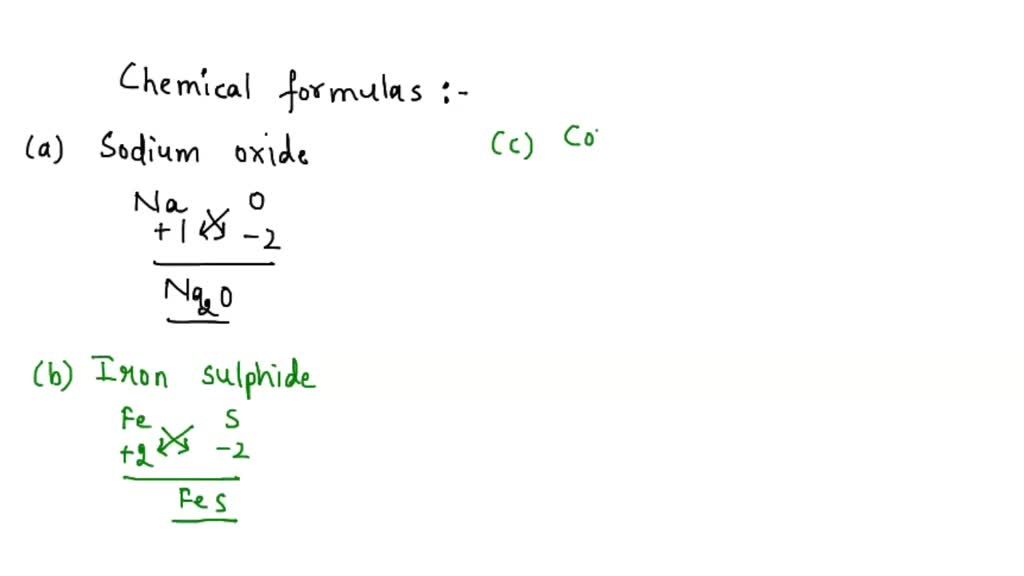 Chemical formulas :-
(a) Sodium oxide
Na O
+1 -2
Na2O
(b) Iron sulphide
Fe S
+2 -2
FeS
(c) Co